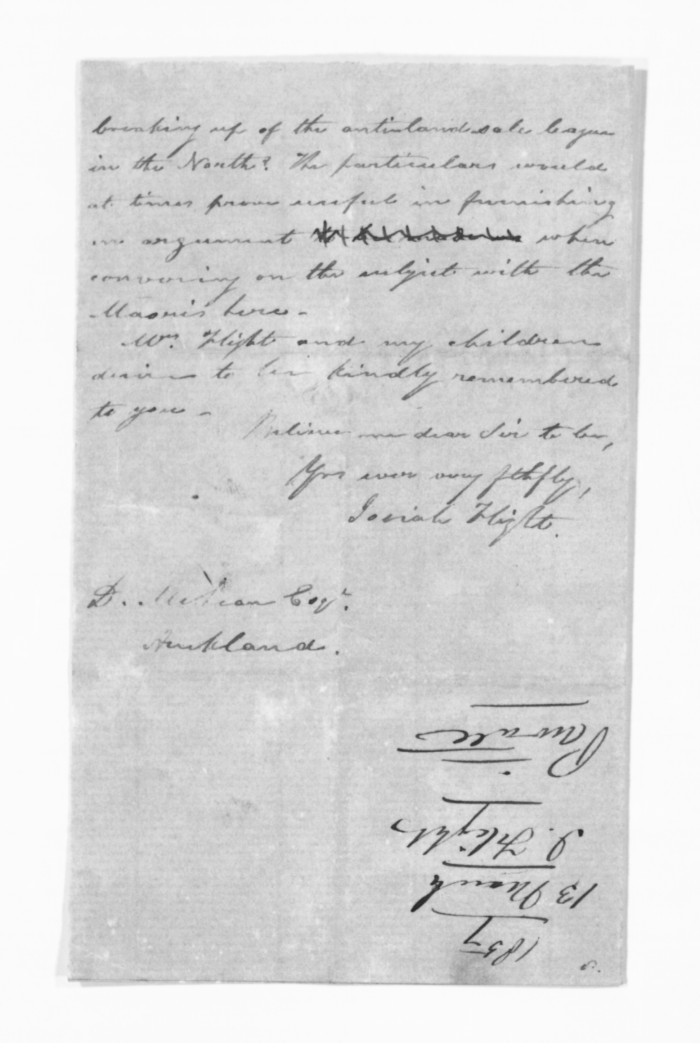 breaking up of the antilandsale league
in the North? The particulars would
at times prove useful in furnishing
an argument when
conversing on the subject with the
Maoris here -
Mrs. Flight and my children
desire to be kindly remembered
to you -
Believe me dear Sir to be,
Yrs ever very fthfly,
Josiah Flight.
D. McLean Esqr.
Auckland.
1857
13 March
J. Flight
Private